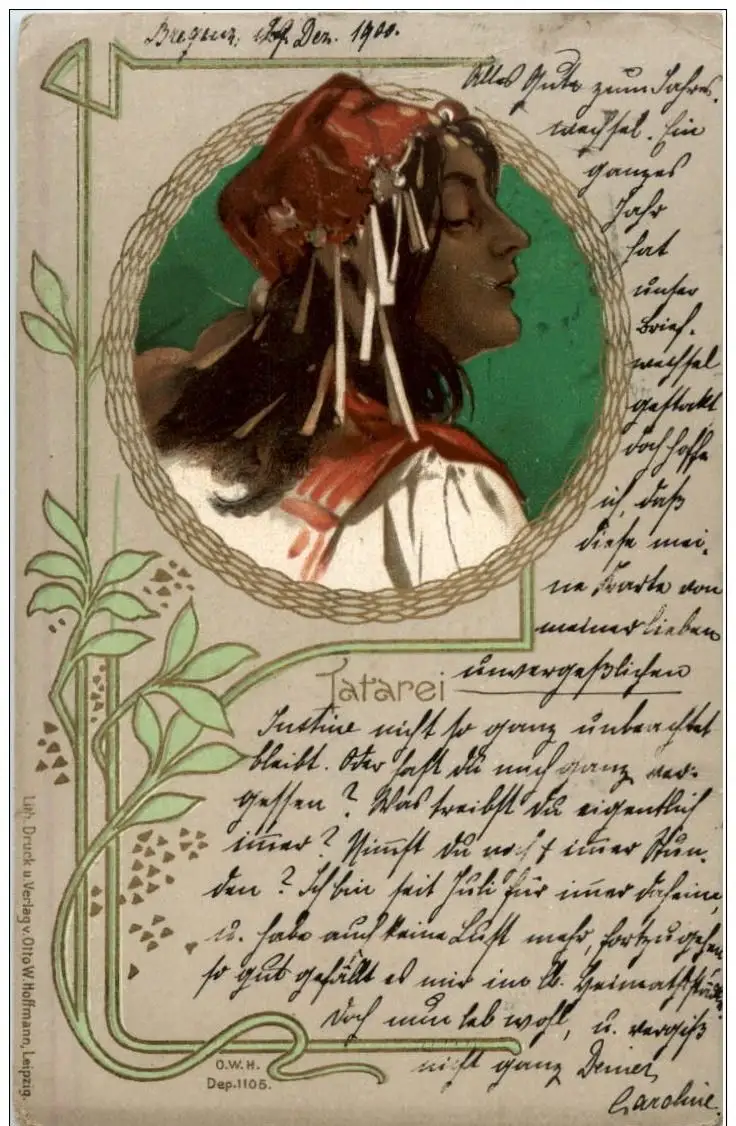 Bregenz, 29. Dez. 1900.
Alles Gute zum Jahres-
wechsel. Ein
ganzes
Jahr
hat
unser
Brief-
wechsel
gestockt
doch hoffe
ich, daß
diese mei-
ne Karte von
meiner lieben
unvergeßlichen
Tatarei
Justine nicht so ganz unbeachtet
bleibt. Oder hast du mich ganz ver-
gessen? Was treibst du eigentlich
im̄er? Nim̄st du noch im̄er Stun-
den? Ich bin seit Juli für im̄er daheim,
u. habe auch keine Lust mehr, fortzugehen
so gut gefällt es mir im lb. Heimathstädtch.
Doch nun leb wohl, u. vergiß
nicht ganz Deiner
Caroline.
Lith. Druck u. Verlag v. Otto W. Hoffmann, Leipzig.
O.W.H.
Dep. 1105.